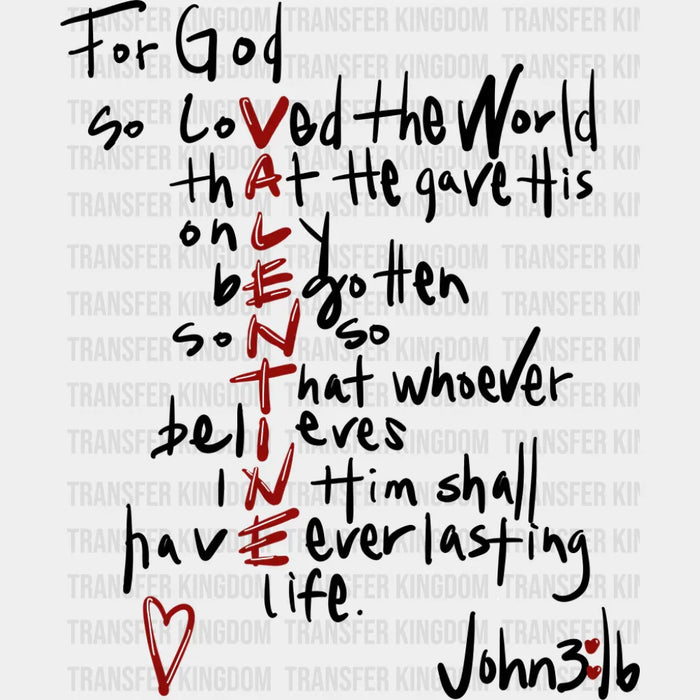 For God
so LoVed the World
thAt He gave His
onLy
bEgotten
soN so
That whoever
belIeves
iN Him shall
havE everlasting
life.
John3:16
TRANSFER KINGDOM